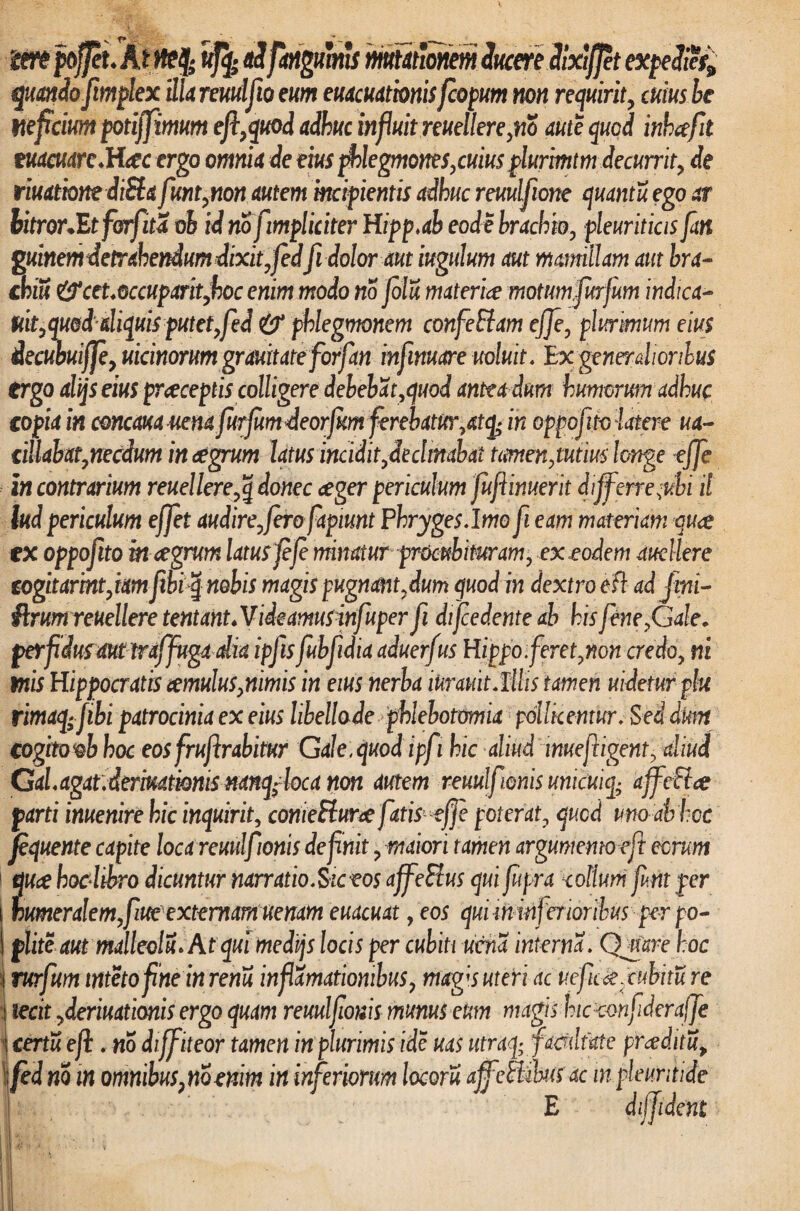 tere posset. At neq; usq; ad sanguinis mutationem ducere dixisset expedies,
quando simplex illa reuulsio eum euacuationis scopum non requirit, cuius be
neficium potissimum est, quod adhuc influit reuellere, nō autē quod inhæsit
euacuare. Hæc ergo omnia de eius phlegmones, cuius plurimum decurrit, de
riuatione dicta sunt, non autem incipientis adhuc reuulsione quantū ego ar
bitror. Et forsitā ob id nō simpliciter Hipp. ab eodē brachio, pleuriticis san
guinem detrahendum dixit, sed si dolor aut iugulum aut mamillam aut bra-
chiū & cet. occuparit, hoc enim modo nō solū materiæ motum sursum indica-
uit, quod aliquis putet, sed & phlegmonem confectam esse, plurimum eius
decubuisse, uicinorum grauitate forsan insinuare uoluit. Ex generalioribus
ergo alijs eius præceptis colligere debebāt, quod antea dum humorum adhuc
copia in concaua uena sursum deorsum ferebatur, atq; in opposito latere ua-
cillabat, necdum in ægrum latus incidit, declinabat tamen, tutius longe esse
in contrarium reuellere, q̄ donec æger periculum sustinuerit differre, ubi il
lud periculum esset audire, sero sapiunt Phryges. Imo si eam materiam quæ
ex opposito in ægrum latus sese minatur procubituram, ex eodem auellere
cogitarint, iam sibi q̄ nobis magis pugnant, dum quod in dextro est ad sini-
strum reuellere tentant. Videamus insuper si discedente ab his sene, Gale.
perfidus aut trassuga alia ipsis subsidia aduersus Hippo. feret, non credo, ni
mis Hippocratis æmulus, nimis in eius uerba iurauit. Illis tamen uidetur plu
rimaq; sibi patrocinia ex eius libello de phlebotomia pollicentur. Sed dum
cogito ob hoc eos frustrabitur Gale. quod ipsi hic aliud inuestigent, aliud
Gal. agat. deriuationis nanq; loca non autem reuulsionis unicuiq; affectæ
parti inuenire hic inquirit, coniecturæ satis esse poterat, quod uno ab hoc
sequente capite loca reuulsionis definit, maiori tamen argumento est eorum
quæ hoc libro dicuntur narratio. Sic eos affectus qui supra collum sunt per
humeralem, siue externam uenam euacuat, eos qui in inferioribus per po-
plite aut malleolū. At qui medijs locis per cubiti uenā internā. Quare hoc
rursum intēto fine in renū inflāmationibus, magis uteri ac uesicæ, cubitū re
iecit, deriuationis ergo quam reuulsionis munus eum magis hic considerasse
certū est. nō diffiteor tamen in plurimis idē uas utraq; facultate præditū,
sed nō in omnibus, nō enim in inferiorum locorū affectibus ac in pleuritide
E diffident